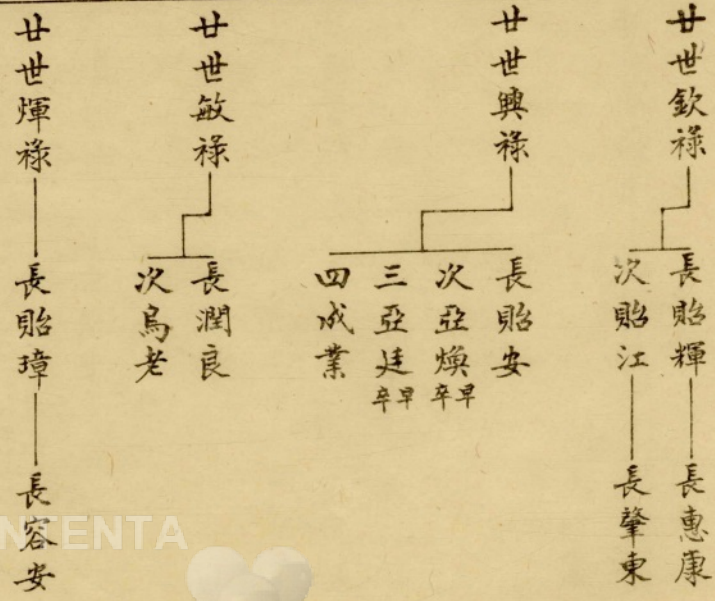 廿世欽祿
長貽輝
次貽江
長惠康
長肇東
廿世興祿
長貽安
次亞煥早卒
三亞廷早卒
四成業
廿世敏祿
長潤良
次烏老
廿世煇祿
長貽璋
長容安
NTENTA